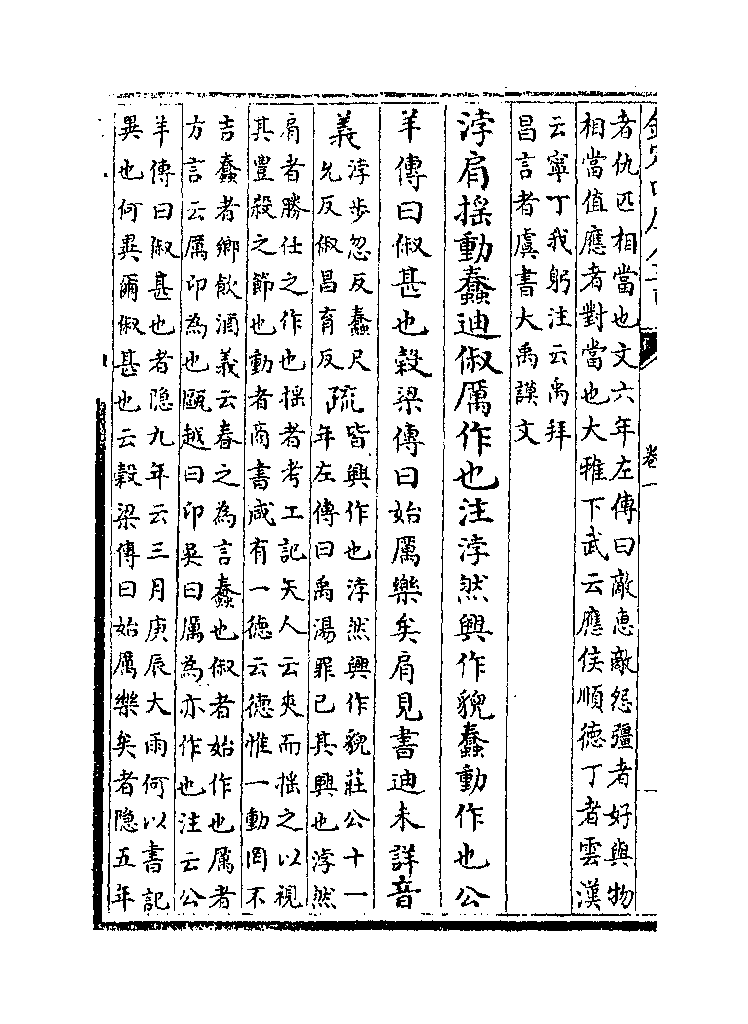 者仇匹相當也文六年左傳曰敵惠敵怨彊者好與物
相當值應者對當也大雅下武云應侯順德丁者雲漢
云寧丁我躬注云禹拜
昌言者虞書大禹謨文
浡肩搖動蠢迪俶厲作也注浡然興作貌蠢動作也公
羊傳曰俶甚也穀梁傳曰始厲樂矣肩見書迪未詳音
義浡步忽反蠢尺
允反俶昌育反
疏皆興作也浡然興作貌莊公十一
年左傳曰禹湯罪已其興也浡然
肩者勝仕之作也搖者考工記矢人云夾而搖之以視
其豐殺之節也動者商書咸有一德云德惟一動罔不
吉蠢者鄉飲酒義云春之為言蠢也俶者始作也厲者
方言云厲卬為也甌越曰卬吳曰厲為亦作也注云公
羊傳曰俶甚也者隐九年云三月庚辰大雨何以書記
異也何異爾俶甚也云穀梁傳曰始厲樂矣者隐五年
卷一